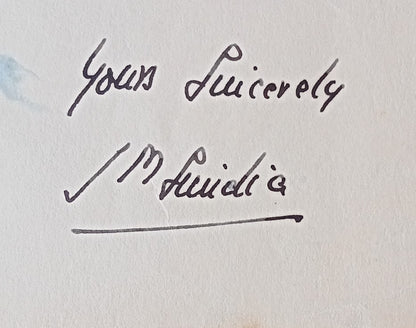 Yours Sincerely
J M Sindia